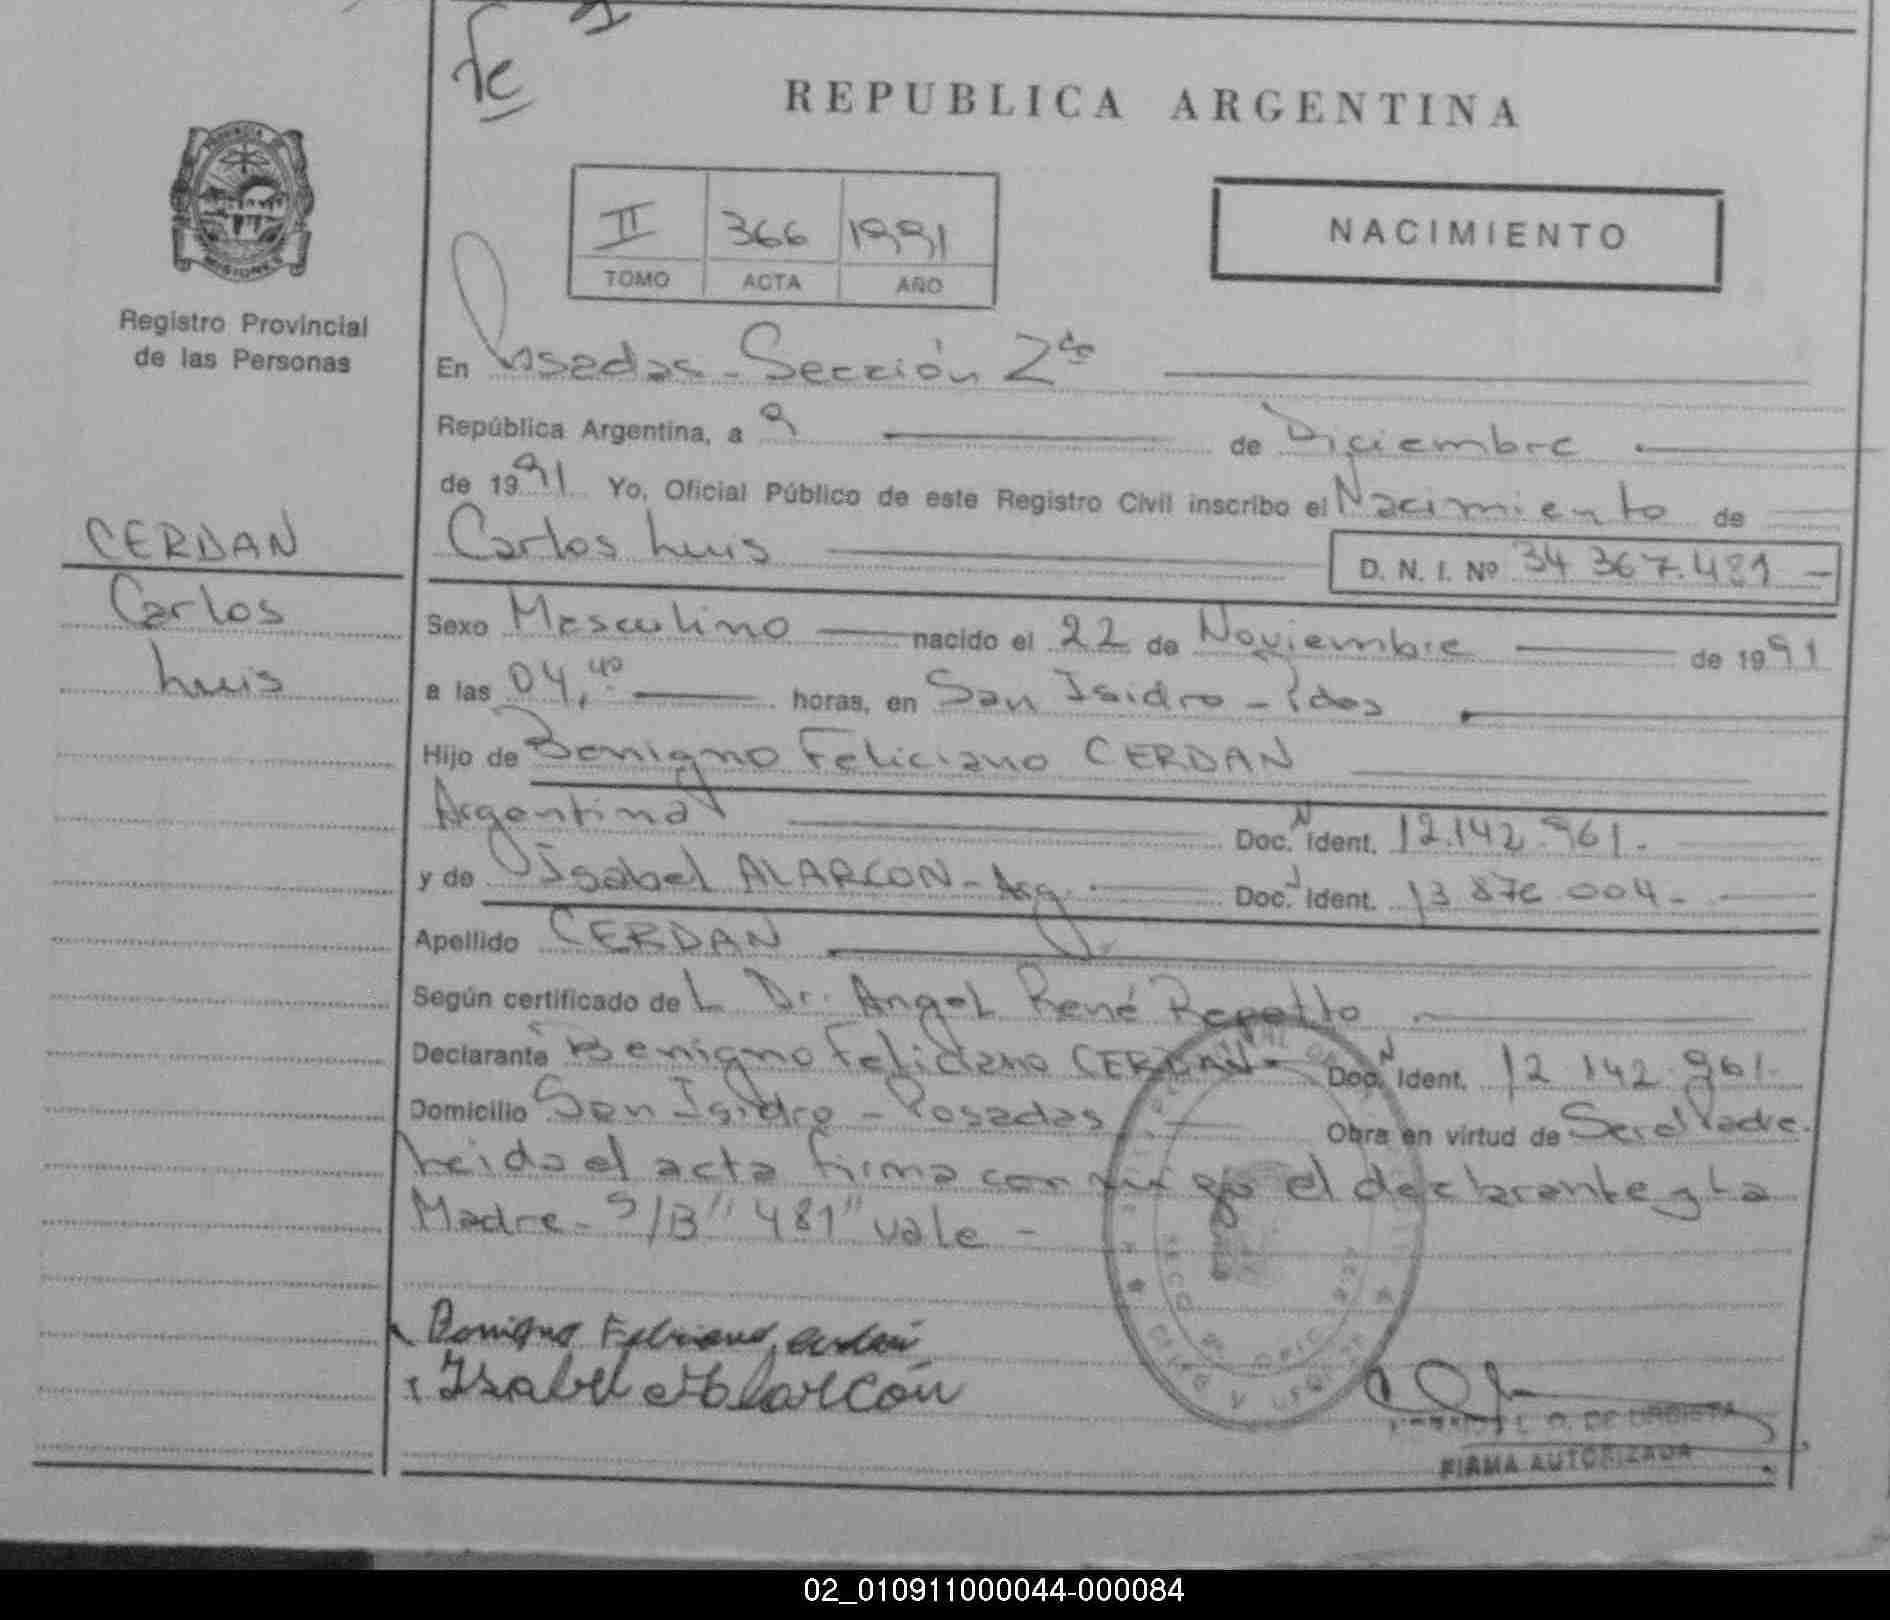 REPUBLICA ARGENTINA
PROVINCIA DE
MISIONES
Registro Provincial
de las Personas
II 366 1991
TOMO ACTA AÑO
NACIMIENTO
En Posadas - Sección 2da
República Argentina, a 9 de Diciembre
de 1991 Yo, Oficial Público de este Registro Civil inscribo el Nacimiento de
CERDAN
Carlos Luis D. N. I. Nº 34 367.481 -
Carlos
Luis
Sexo Masculino nacido el 22 de Noviembre de 1991
a las 04,40 horas, en San Isidro - Pdas
Hijo de Benigno Feliciano CERDAN
Argentina Doc. Ident. 12.142.961.
y de Isabel ALARCON - Arg. Doc. Ident. 13 876 004 -
Apellido CERDAN
Según certificado de L Dr. Angel René Repetto
Declarante Benigno Feliciano CERDAN - Doc. Ident. 12 142.961.
Domicilio San Isidro - Posadas Obra en virtud de Ser el Padre.
Leida el acta firma conmigo el declarante y La
Madre - S/B "481" vale -
Benigno Feliciano Cerdán
Isabel Alarcón
DE URBIETA
FIRMA AUTORIZADA
02_010911000044-000084